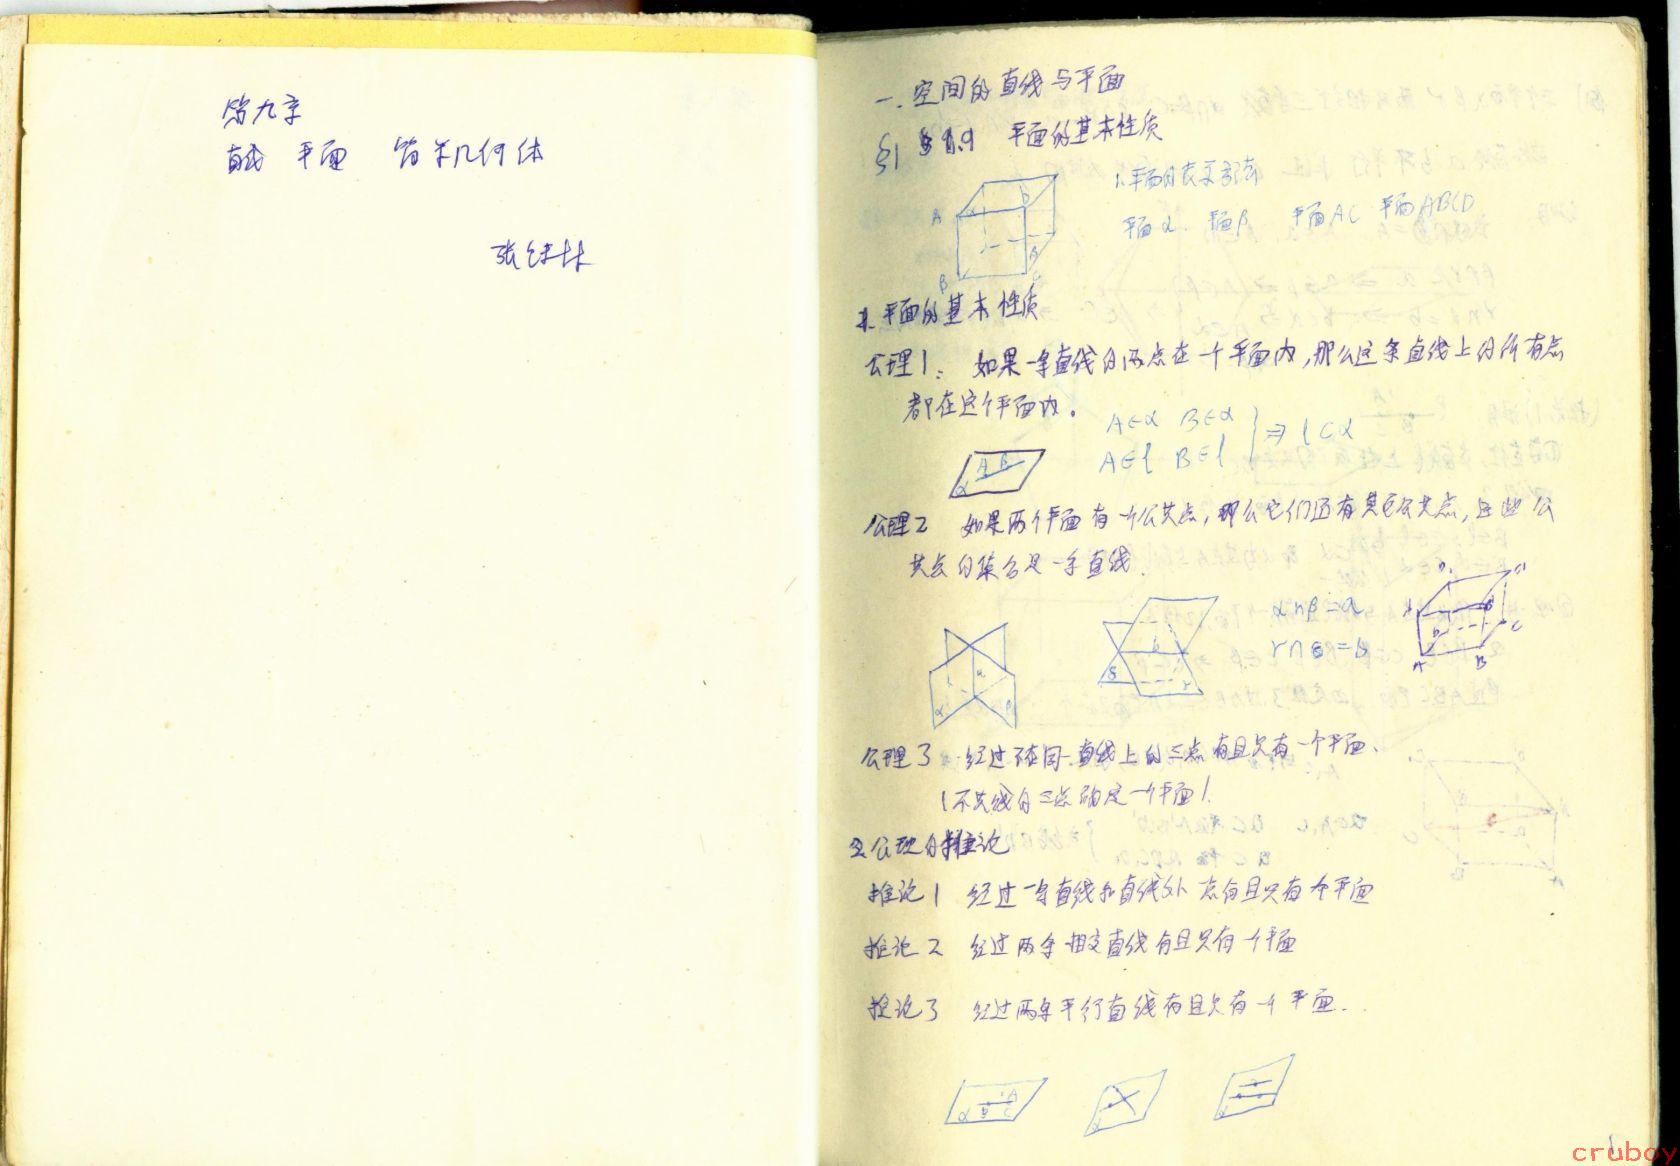 第九章
直线 平面 简单几何体
张
一. 空间的直线与平面
§1 §9.1 平面的基本性质
1. 平面的表示
平面α. 平面β 平面AC 平面ABCD
α b A B C
2. 平面的基本性质
公理1. 如果一条直线的两点在一个平面内,那么这条直线上的所有点
都在这个平面内。
A∈α B∈α
A∈l B∈l } ⇒ l⊂α
A B α
公理2 如果两个平面有一个公共点,那么它们还有其它公共点,且这些公
共点的集合是一条直线.
α∩β=a
γ∩ =b
α β b γ
D C' A B C
公理3 经过不在同一直线上的三点有且只有一个平面.
(不共线的三点确定一个平面).
3. 公理的推论
推论1 经过一条直线和直线外一点有且只有一个平面
推论2 经过两条相交直线有且只有一个平面
推论3 经过两条平行直线有且只有一个平面..
A α B C
α
1
cruboy